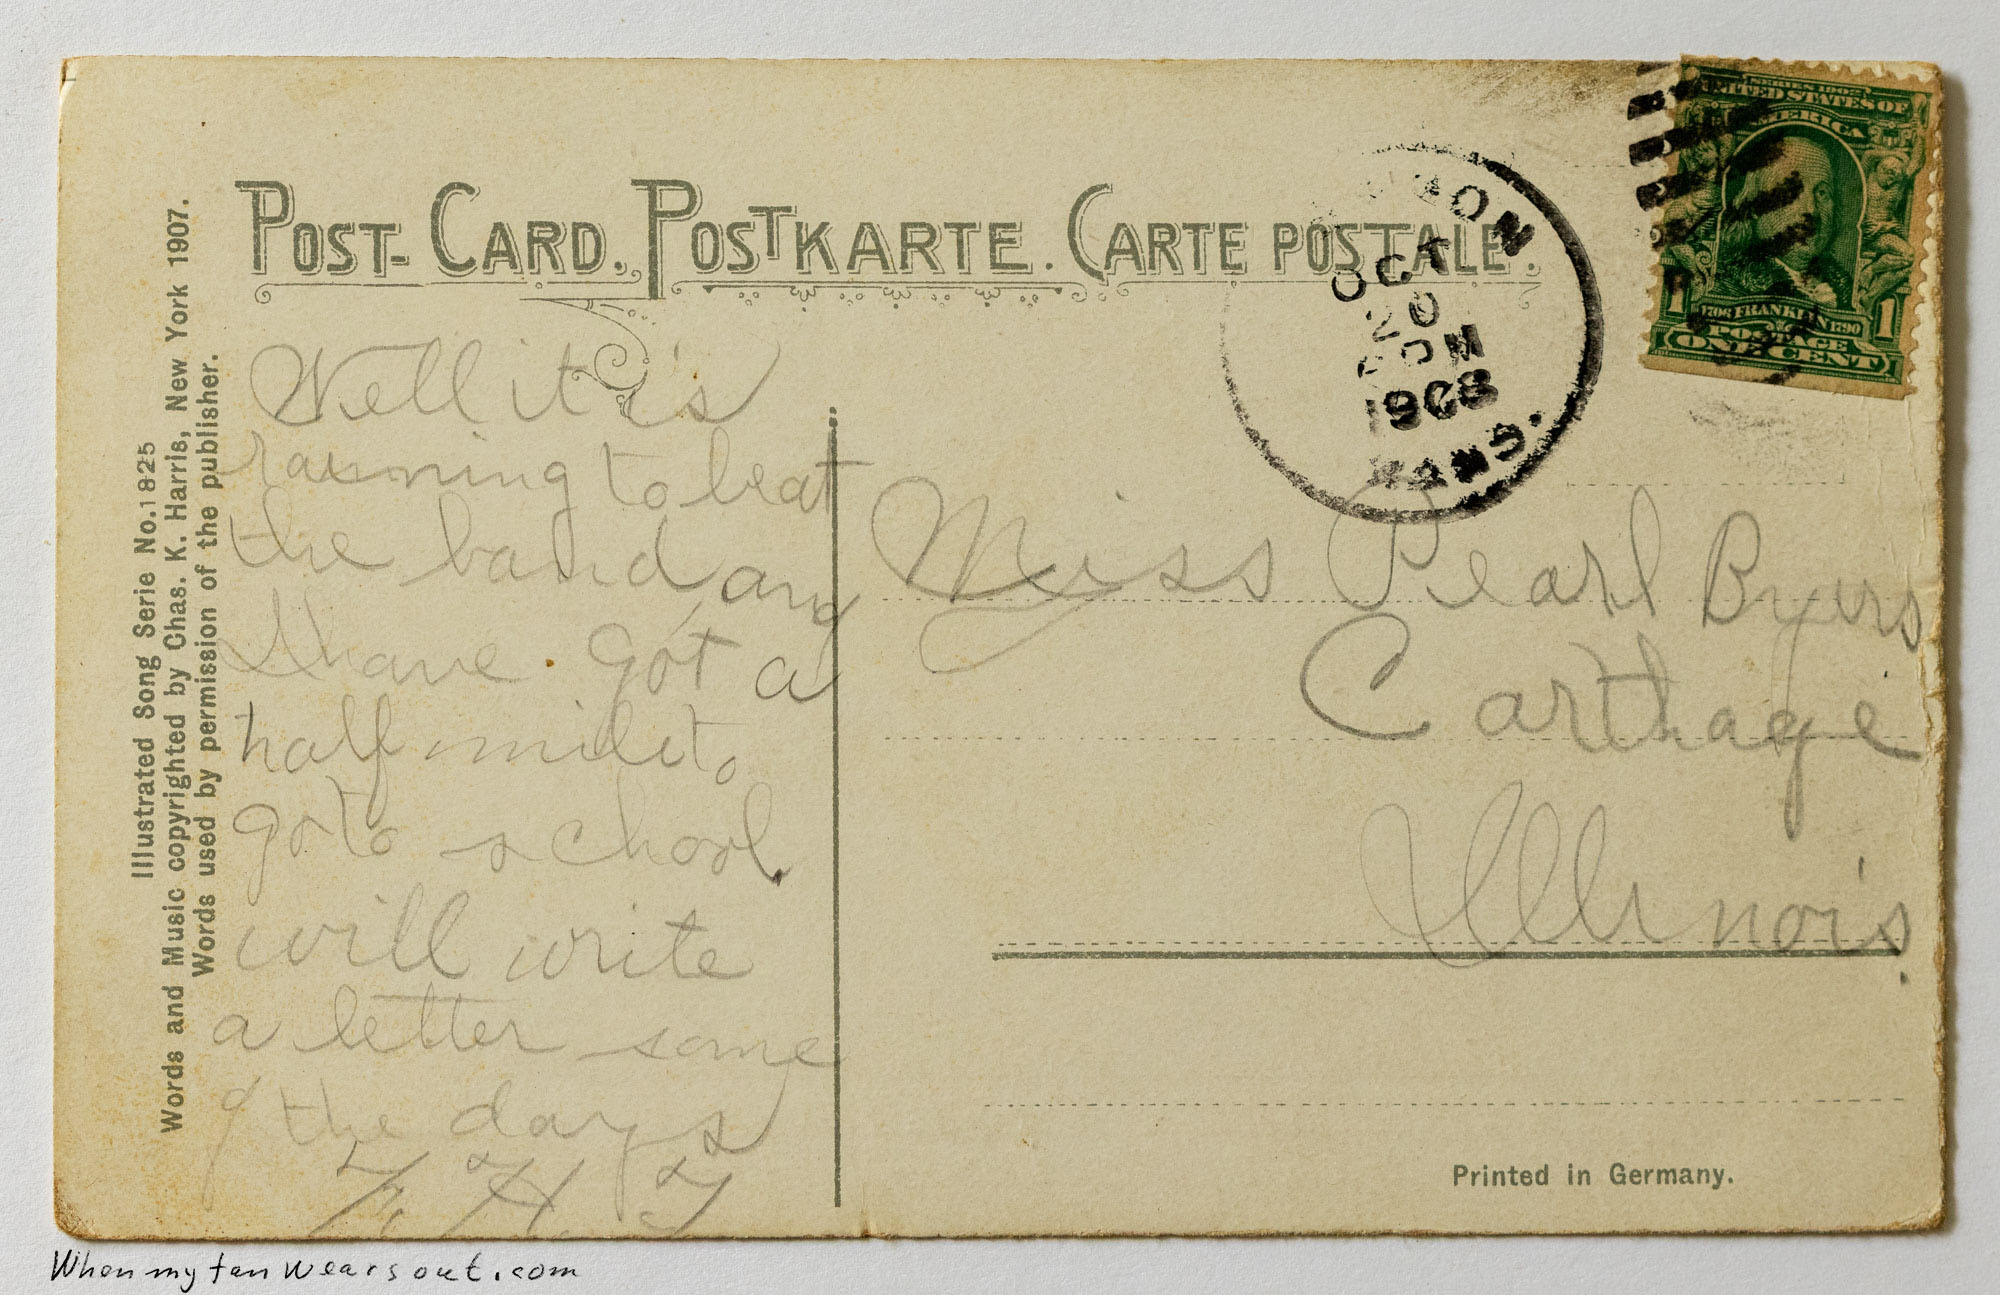 POST-CARD. POSTKARTE. CARTE POSTALE.
Illustrated Song Serie No.1825
Words and Music copyrighted by Chas. K. Harris, New York 1907.
Words used by permission of the publisher.
OCT
20
1908
KANS.
SERIES 1902
UNITED STATES OF
AMERICA
1706 FRANKLIN 1790
1 POSTAGE 1
ONE CENT
Well it is
raining to beat
the band and
I have got a
half mile to
go to school.
will write
a letter some
of the days
F. H. F
Miss Pearl Byers
Carthage
Illinois.
Printed in Germany.
When my tan wears out.com